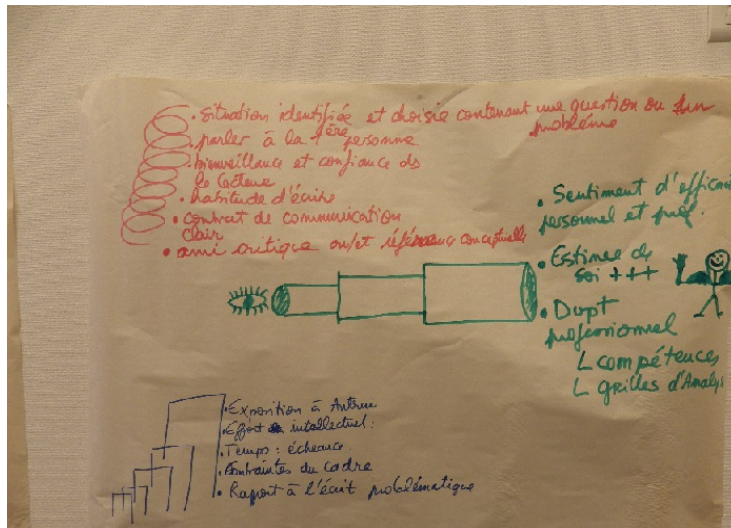 • situation identifiée et choisie contenant une question ou un
problème
• parler à la 1ère personne
• bienveillance et confiance ds
le lecteur
• habitude d'écrire
• contrat de communication
clair
• ami critique ou/et référence conceptuelle
• Sentiment d'efficac
personnel et prof.
• Estime de
soi +++
• Dvpt
professionnel
L compétences
L grilles d'Analys
• Exposition à Autrui
• Effort intellectuel :
• Temps : échéance
• Contraintes du cadre
• Raport à l'écrit problématique